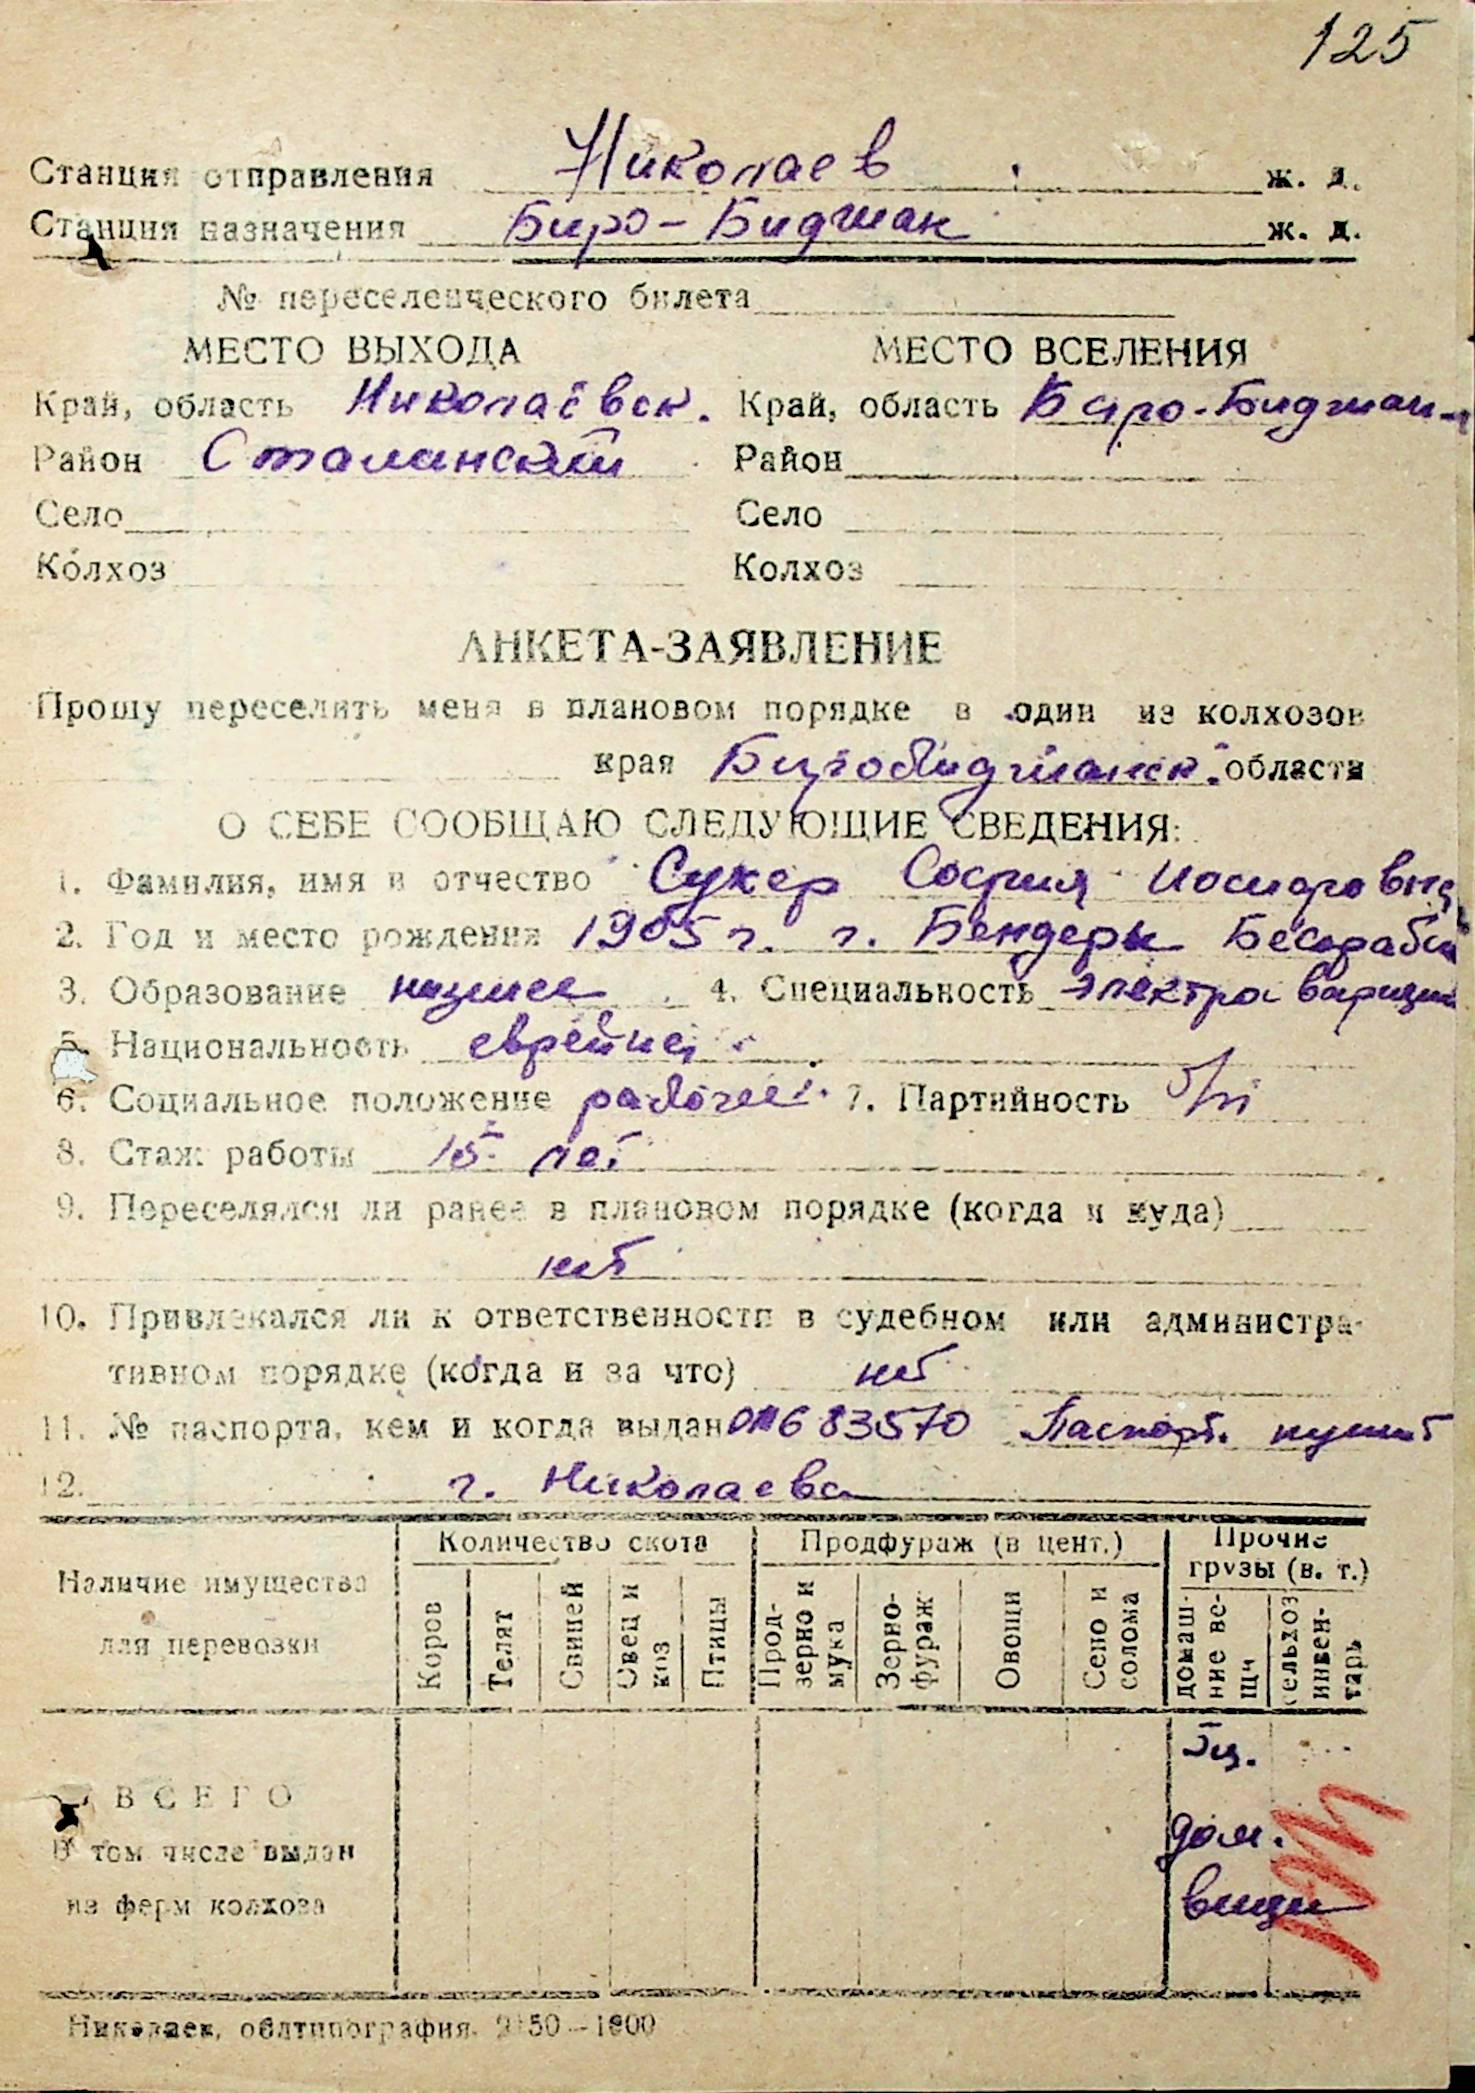 125
Станция отправления Николаев ж. д.
Станция назначения Биро-Биджан ж. д.
№ переселенческого билета
МЕСТО ВЫХОДА МЕСТО ВСЕЛЕНИЯ
Край, область Николаевск. Край, область Биро-Биджан-
Район Сталинский Район
Село Село
Колхоз Колхоз
АНКЕТА-ЗАЯВЛЕНИЕ
Прошу переселить меня в плановом порядке в один из колхозов
края Биробиджанск. области
О СЕБЕ СООБЩАЮ СЛЕДУЮЩИЕ СВЕДЕНИЯ:
1. Фамилия, имя и отчество Сукер София Иосифовна
2. Год и место рождения 1905 г. г. Бендеры Бесараби
3. Образование низшее 4. Специальность электросварщик
5. Национальность еврейка
6. Социальное положение рабочей 7. Партийность б/п
8. Стаж работы 15 лет
9. Переселялся ли ранее в плановом порядке (когда и куда)
нет
10. Привлекался ли к ответственности в судебном или администра-
тивном порядке (когда и за что) нет
11. № паспорта, кем и когда выдан 683570 Паспорт. пункт
12. г. Николаева
Количество скота Продфураж (в цент.) Прочие грузы (в. т.)
Наличие имущества для перевозки
Коров Телят Свиней Овец и коз Птицы Прод-зерно и мука Зерно-фураж Овощи Сено и солома домаш-ние ве-щи сельхоз инвен-тарь
5 ц.
ВСЕГО дом.
В том числе выдан
из ферм колхоза вищи
Николаев, облтипография 2150—1900